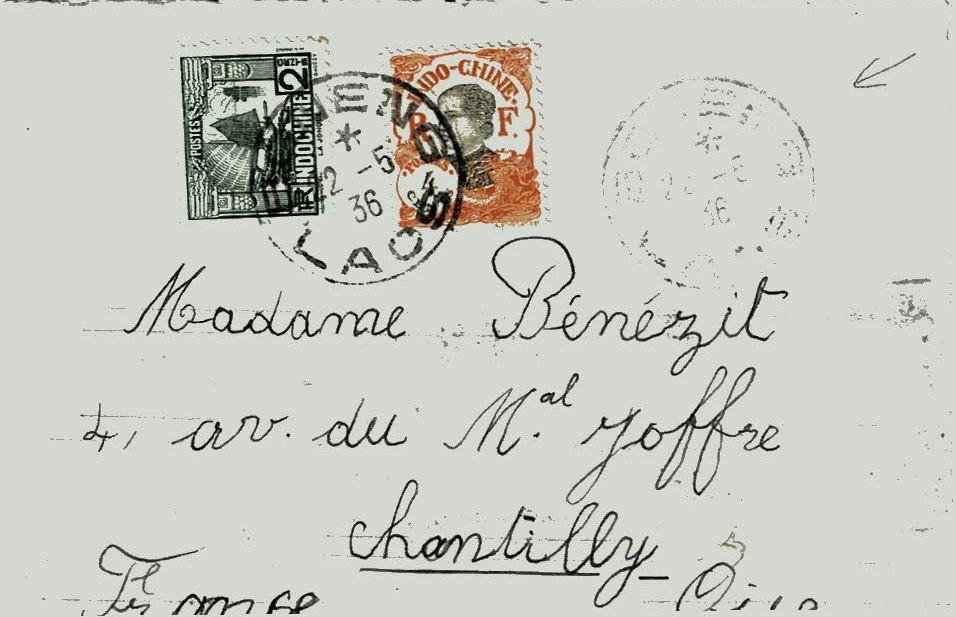 POSTES
INDOCHINE
2
RF
INDO-CHINE
R F
4
*
12 -5
36
LAOS
Madame Bénézit
4, av. du Mal Joffre
Chantilly _ Oise
France